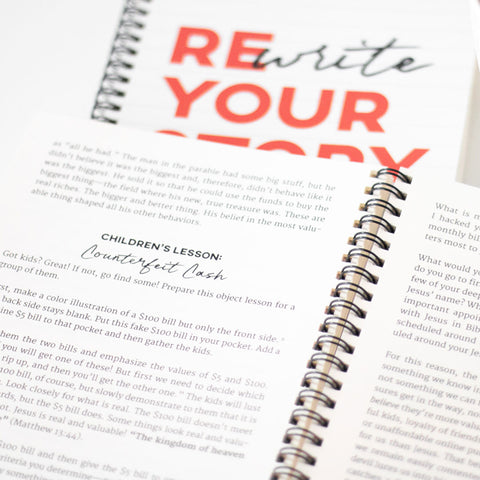 REwrite
YOUR
STORY
as "all he had." The man in the parable had some big stuff, but he
didn't believe it was the biggest and, therefore, didn't behave like it
was the biggest. He sold it so that he could use the funds to buy the
biggest thing—the field where his new, true treasure was. These are
real riches. The bigger and better thing. His belief in the most valu-
able thing shaped all his other behaviors.
CHILDREN'S LESSON:
Counterfeit Cash
Got kids? Great! If not, go find some! Prepare this object lesson for a
group of them.
st, make a color illustration of a $100 bill but only the front side.*
back side stays blank. Put this fake $100 bill in your pocket. Add a
$5 bill to that pocket and then gather the kids.
hem the two bills and emphasize the values of $5 and $100.
you will get one of these! But first we need to decide which
rip up, and then you'll get the other one." The kids will
00 bill, of course, but slowly demonstrate to them that it is
Look closely for what is real. The $100 bill doesn't meet
ards, but the $5 bill does. Some things look real and valu-
ot. Jesus is real and valuable! "The kingdom of heaven
" (Matthew 13:44).
00 bill and then give the $5 bill to
riteria you determine
What is m
I hacked y
monthly bill
ters most to
What would yo
do you go to firs
few of your deep
Jesus' name? Wh
important appoin
with Jesus in Bib
scheduled around
uled around your Je
For this reason, the
something we know is
not something we can
sures get in the way, no
believe they're more valua
ful kids, loyalty of friends
or unaffordable online pu
for us than Jesus. That be
we remain easily contente
devil lures us into bel